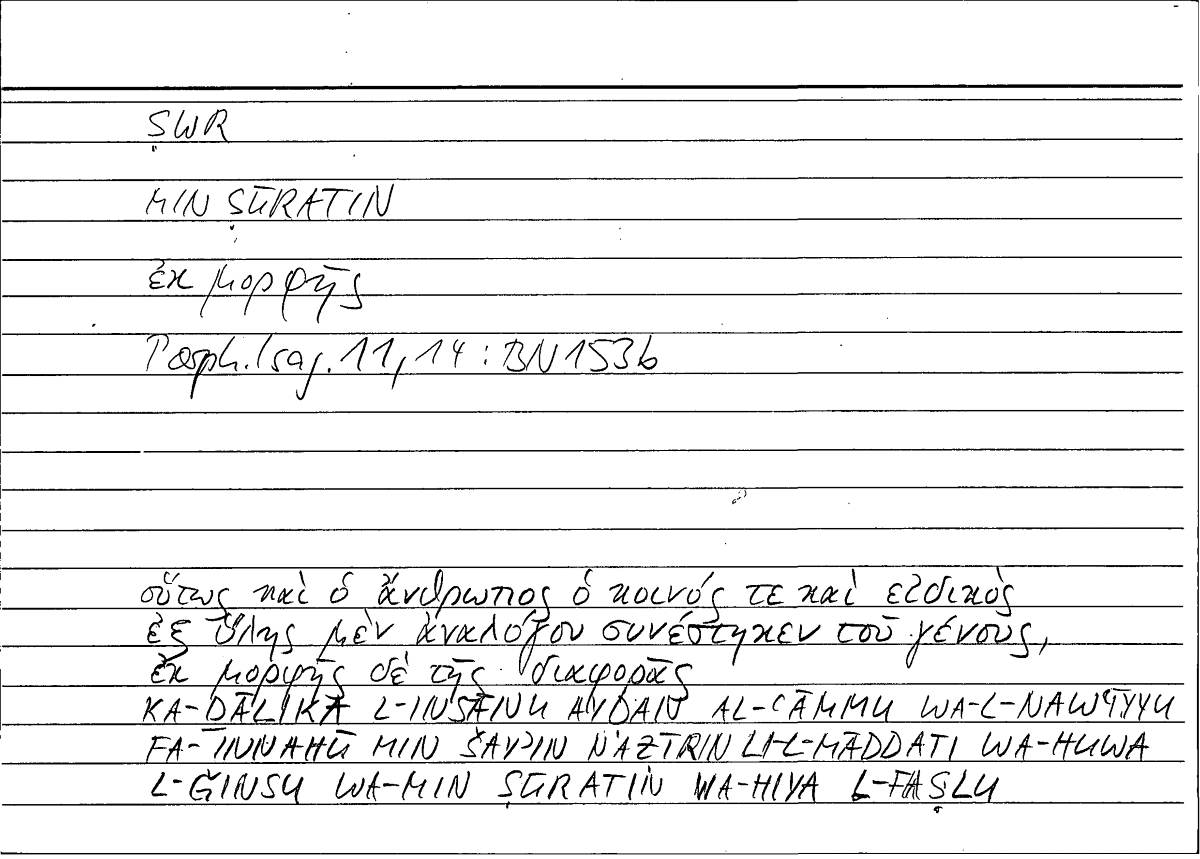 ṢWR
MIN ṢŪRATIN
ἐκ μορφῆς
Porph. Isag. 11, 14 : BN 153b
οὕτως καὶ ὁ ἄνθρωπος ὁ κοινός τε καὶ εἰδικὸς
ἐξ ὕλης μὲν ἀναλόγου συνέστηκεν τοῦ γένους,
ἐκ μορφῆς δὲ τῆς διαφορᾶς
KA-ḎĀLIKA L-INSĀNU AYḌAN AL-ʿĀMMU WA-L-NAWʿĪYYU
FA-INNAHŪ MIN ŠAYʾIN NAẒĪRIN LI-L-MĀDDATI WA-HUWA
L-ǦINSU WA-MIN ṢŪRATIN WA-HIYA L-FAṢLU